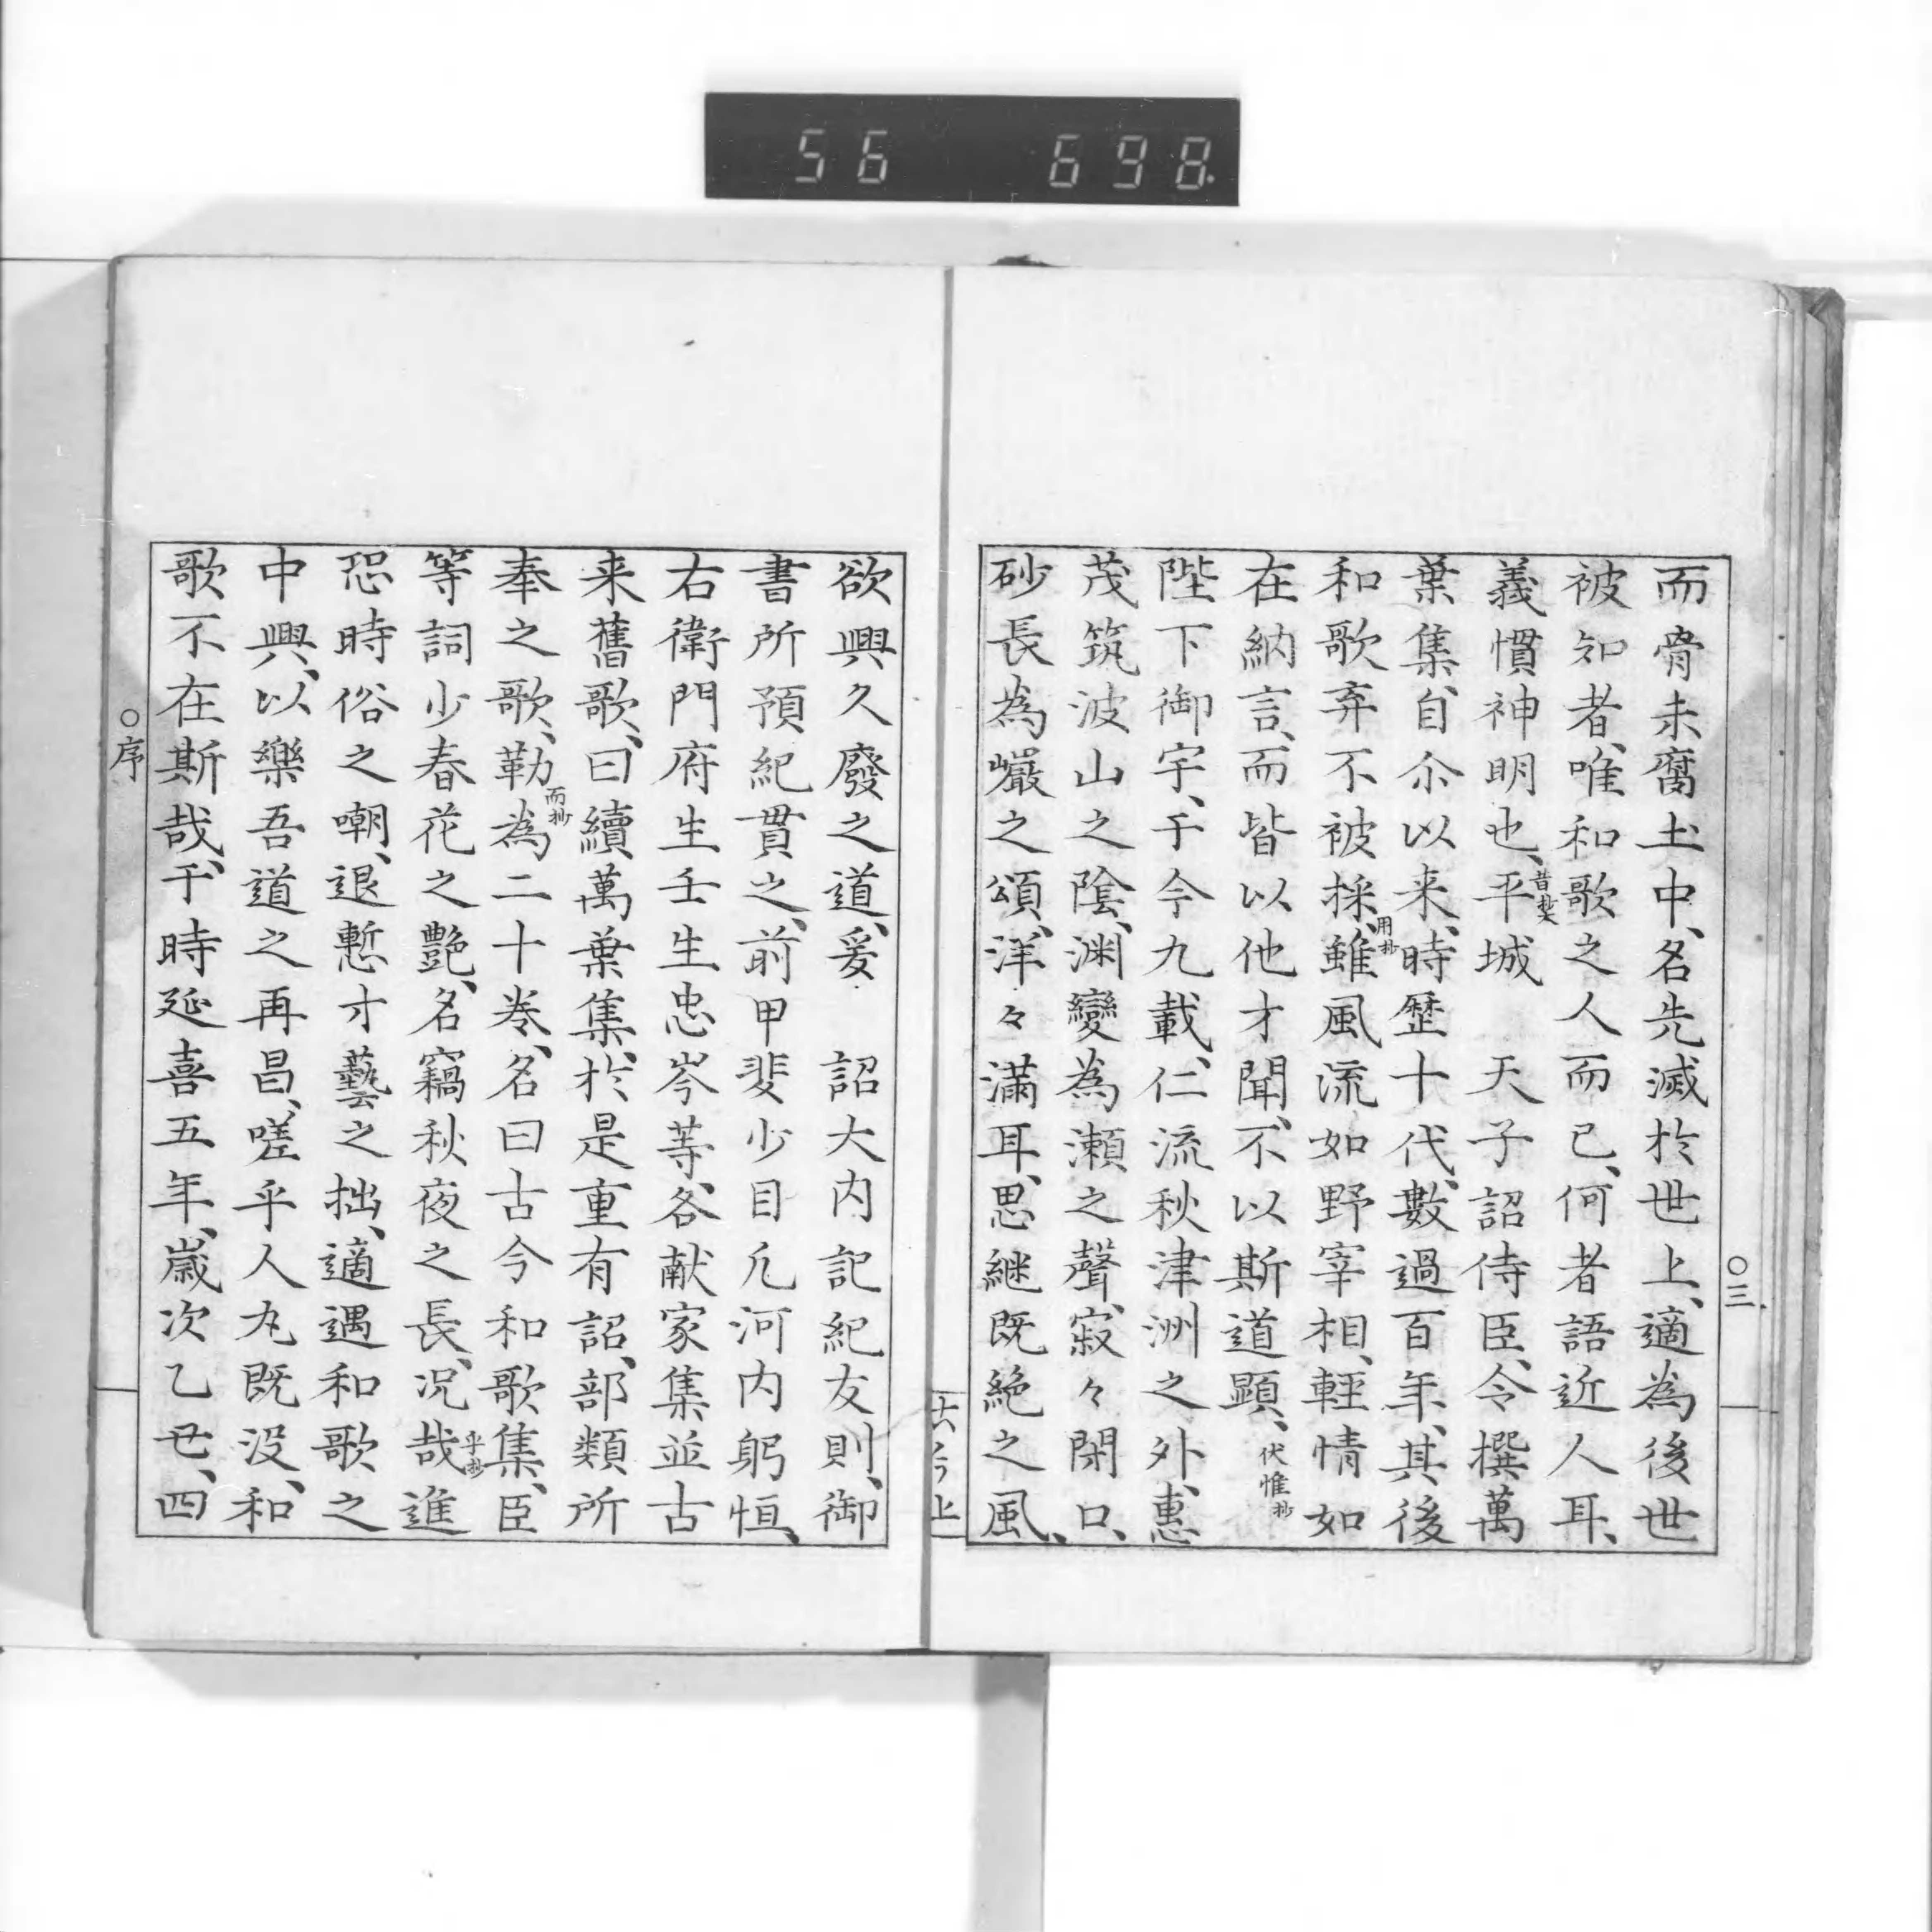 56 698.
〇三
而骨未腐土中、名先滅於世上、適為後世
被知者、唯和歌之人而已、何者語近人耳、
義慣神明也、平城　天子詔侍臣、令撰萬
昔抄
葉集、自尒以来、時歴十代、數過百年、其後
和歌弃不被採、雖風流如野宰相、輕情如
用抄
在納言、而皆以他才聞、不以斯道顯、伏惟抄
陛下御宇、于今九載、仁流秋津洲之外、惠
茂筑波山之陰、渊變為瀬之聲、寂々閇口、
砂長為巖之頌、洋々滿耳、思継既絶之風、
欲興久廢之道、爰　詔大内記紀友則、御
書所預紀貫之、前甲斐少目凢河内躬恒、
右衛門府生壬生忠岑等、各献家集並古
来舊歌、曰續萬葉集、於是重有詔、部類所
奉之歌、勒為二十巻、名曰古今和歌集、臣
而抄
等詞少春花之艶、名竊秋夜之長、况哉進
乎抄
恐時俗之嘲、退慙才藝之拙、適遇和歌之
中興、以樂吾道之再昌、嗟乎人丸既没、和
歌不在斯哉、于時延喜五年、歳次乙丑、四
〇序